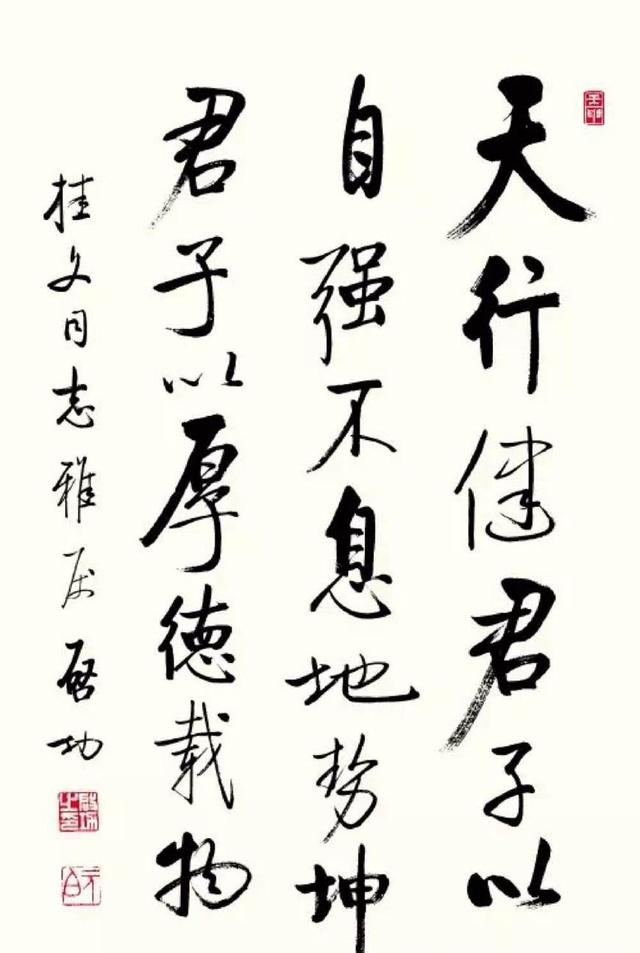 天行健君子以
自强不息地势坤
君子以厚德载物
桂文同志雅属启功